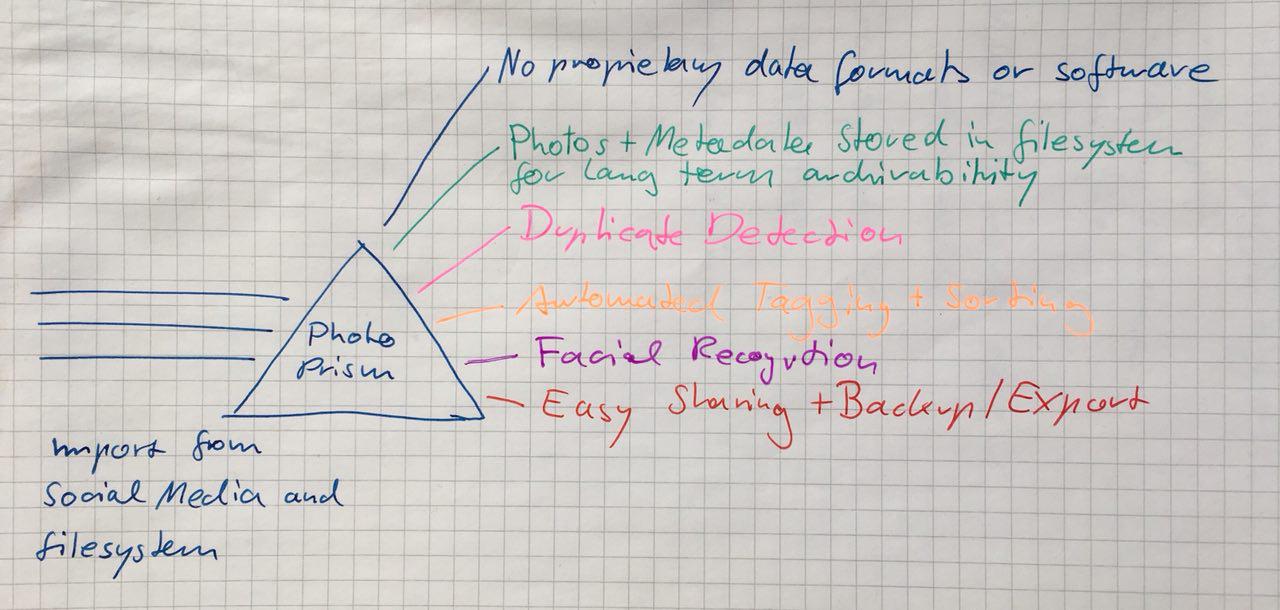 No proprietary data formats or software
Photos + Metadata stored in filesystem
for long term archivability
Duplicate Detection
Automated Tagging + Sorting
Facial Recognition
Easy Sharing + Backup/Export
Photo
Prism
Import from
Social Media and
filesystem